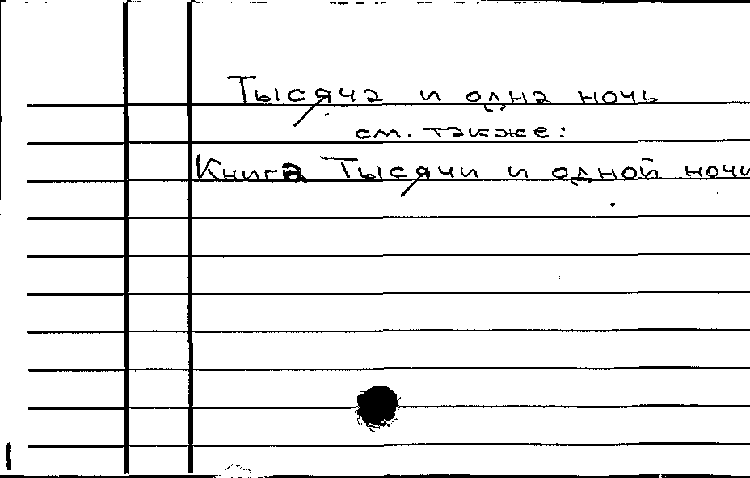 Тысяча и одна ночь
см. также:
Книга Тысячи и одной ночи